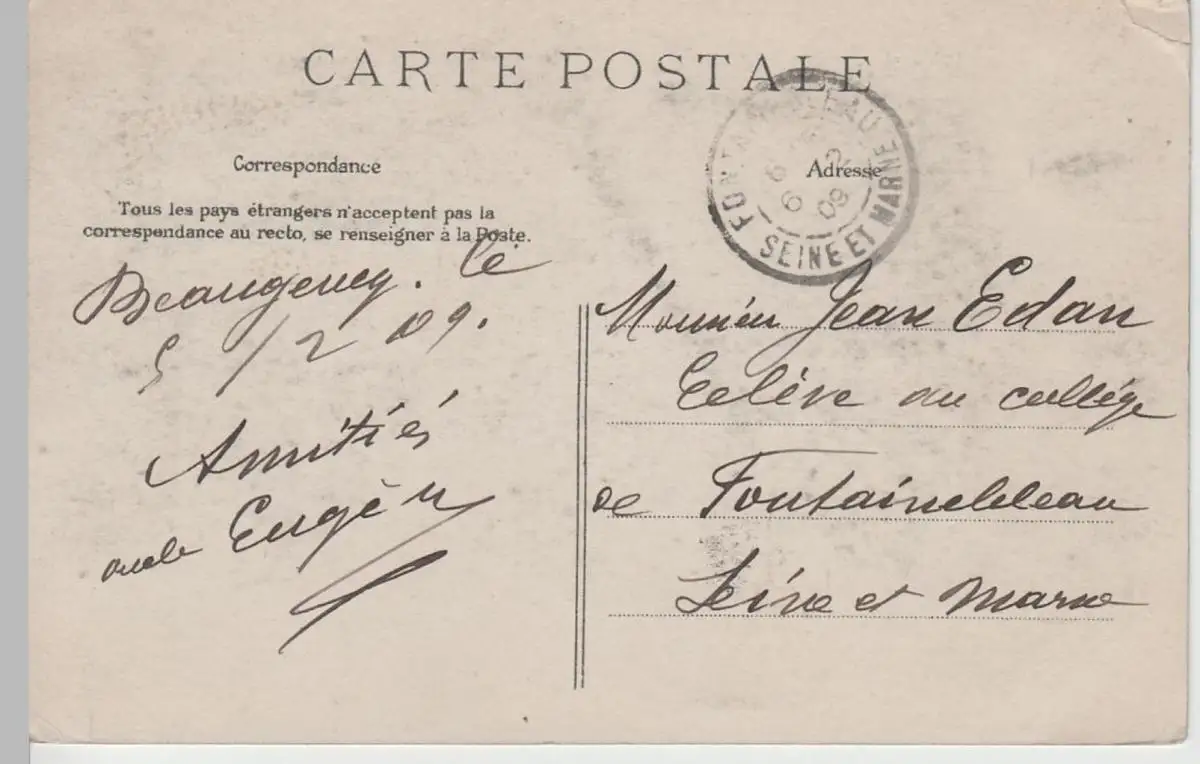 CARTE POSTALE
Correspondance
Tous les pays étrangers n'acceptent pas la
correspondance au recto, se renseigner à la Poste.
Beaugency. le
5/2 09.
Amitiés
oncle Eugène
Adresse
FONTAINEBLEAU
6 2
09
SEINE ET MARNE
Monsieur Jean Edan
Eelève au collége
de Fontainebleau
Seine et Marne